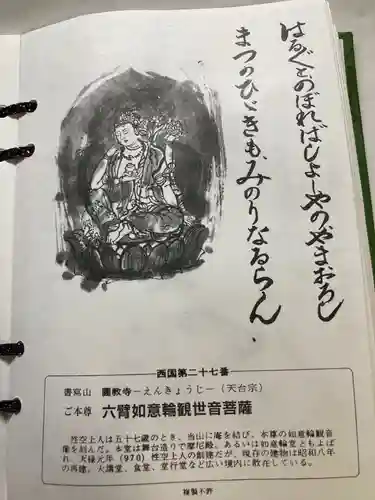 はるばるとのぼればしょしやのやまおろし
まつのひゞきもみのりなるらん
西国第二十七番
書寫山 圓教寺－えんきょうじ－（天台宗）
ご本尊 六臂如意輪観世音菩薩
性空上人は五十七歳のとき、当山に庵を結び、本尊の如意輪観音
像を刻んだ。本堂は舞台造りで摩尼殿、あるいは如意輪堂ともよば
れ、天禄元年（970）性空上人の創建だが、現存の建物は昭和八年
の再建。大講堂、食堂、常行堂など広い境内に散在している。
複製不許